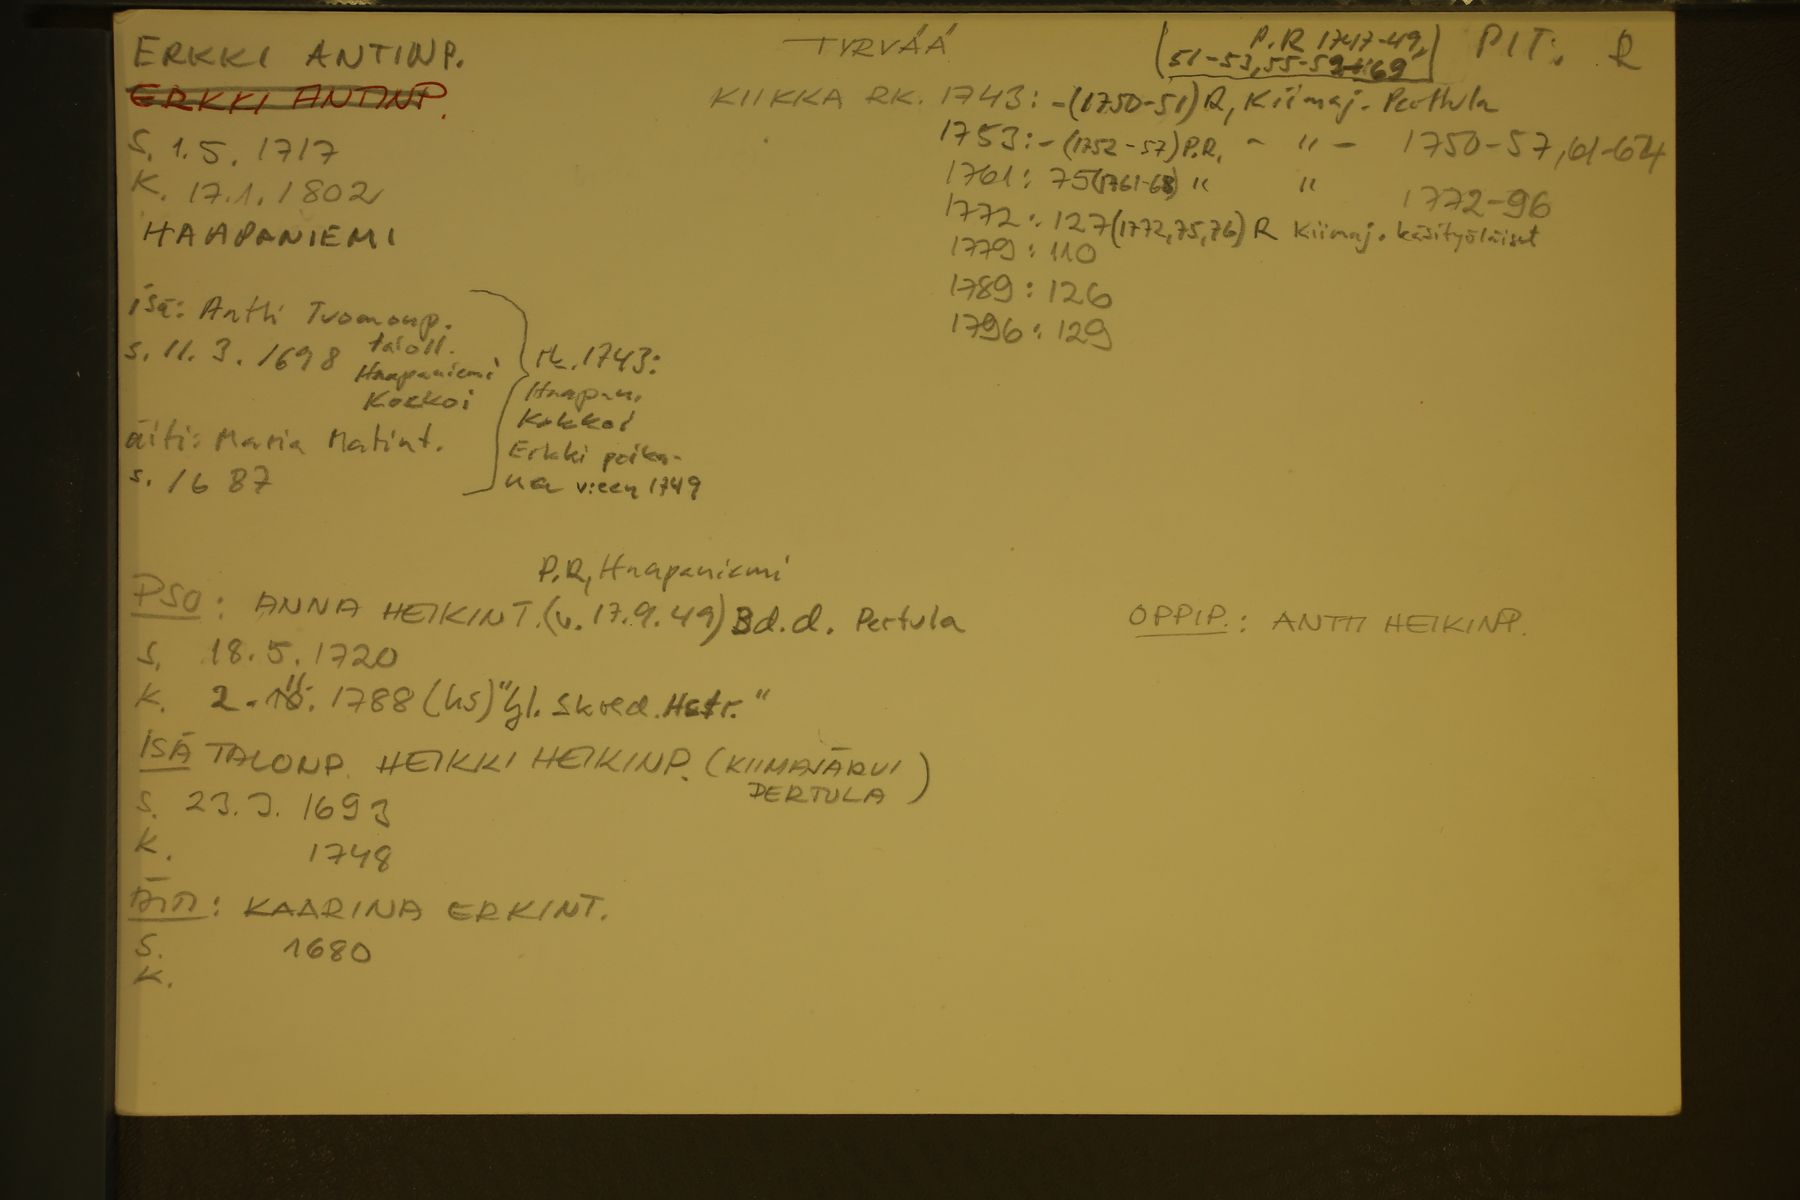 ERKKI ANTINP.
ERKKI ANTINP.
S. 1.5. 1717
K. 17.1. 1802
HAAPANIEMI
TYRVÄÄ
(P.R 1747-49,
51-53, 55-59, 69)
PIT: R
KIIKKA RK. 1743: -(1750-51) R, Kiimaj. Perttula
1753: - (1752-57) P.R, - " - 1750-57, 61-64
1761: 75 (1761-68) " " 1772-96
1772: 127 (1772, 75, 76) R Kiimaj. käsityöläiset
1779: 110
1789: 126
1796: 129
isä: Antti Tuomonp.
s. 11. 3. 1698 taloll.
Haapaniemi
Kokkoi
äiti: Maria Matint.
s. 1687
rk. 1743:
Haapan.
Kokkoi
Erkki poika-
na vieen 1749
P.R, Haapaniemi
PSO: ANNA HEIKINT. (v. 17.9.49) Bd.d. Pertula
S. 18.5. 1720
K. 2.11. 1788 (hs) "gl. Skred. Hstr."
ISÄ TALONP. HEIKKI HEIKINP. (KIIMAJÄRVI
PERTULA)
S. 23.3. 1693
K. 1748
ÄITI: KAARINA ERKINT.
S. 1680
K.
OPPIP.: ANTTI HEIKINP.